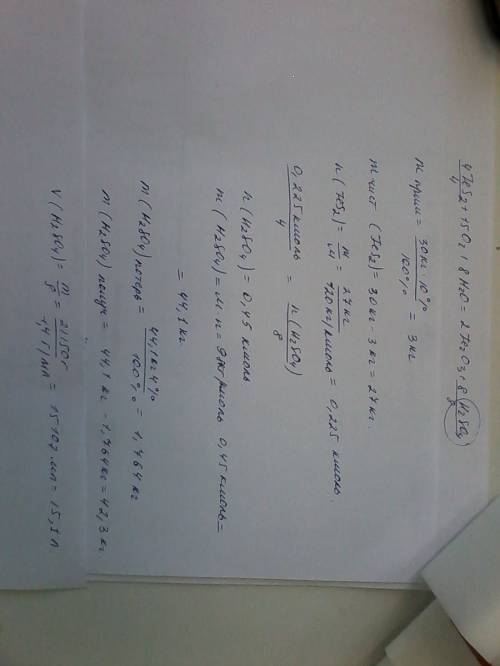 4FeS2 + 15O2 + 8H2O = 2Fe2O3 + 8H2SO4
4 8
m прим = 30кг · 10% / 100% = 3 кг
m чист (FeS2) = 30кг - 3кг = 27кг.
n (FeS2) = m / M = 27кг / 120кг/кмоль = 0,225 кмоль.
0,225 кмоль / 4 = n(H2SO4) / 8
n (H2SO4) = 0,45 кмоль
m (H2SO4) = M · n = 98кг/кмоль · 0,45 кмоль =
= 44,1 кг
m (H2SO4) потерь = 44,1кг · 4% / 100% = 1,764кг
m (H2SO4) получ = 44,1кг - 1,764кг = 42,3кг.
V (H2SO4) = m / ρ = 21150г / 1,4 г/мл = 15107 мл = 15,1 л.